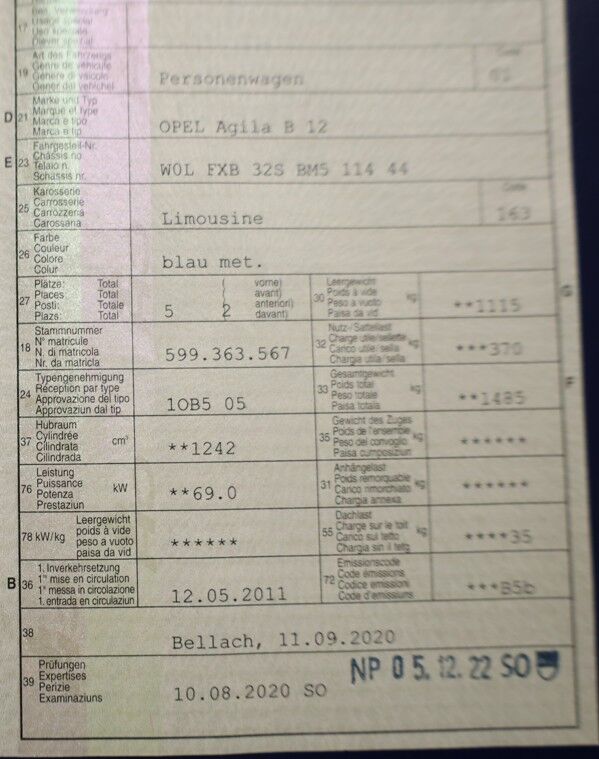 Bes. Verwendung
17 Usage spécial
Uso speciale
Diever spezial
Art des Fahrzeugs
19 Genre de véhicule
Genere di veicolo
Gener dal vehichel
Personenwagen
Code
01
Marke und Typ
D 21 Marque et type
Marca e tipo
Marca e tip
OPEL Agila B 12
Fahrgestell-Nr.
E 23 Châssis no
Telaio n.
Schassis nr.
WOL FXB 32S BM5 114 44
Karosserie
25 Carrosserie
Carrozzeria
Carossaria
Limousine
Code
163
Farbe
26 Couleur
Colore
Colur
blau met.
Plätze: Total
27 Places: Total
Posti: Totale
Plazs: Total
5
( vorne)
( avant)
( anteriori)
( davant)
2
Leergewicht
30 Poids à vide kg
Peso a vuoto
Paisa da vid
**1115
G
Stammnummer
18 N° matricule
N. di matricola
Nr. da matricla
599.363.567
Nutz-/Sattellast
32 Charge utile/sellette kg
Carico utile/sella
Chargia utila/sella
***370
Typengenehmigung
24 Réception par type
Approvazione del tipo
Approvaziun dal tip
1OB5 05
Gesamtgewicht
33 Poids total kg
Peso totale
Paisa totala
**1485
F
Hubraum
37 Cylindrée cm³
Cilindrata
Cilindrada
**1242
Gewicht des Zuges
35 Poids de l'ensemble kg
Peso del convoglio
Paisa cumposiziun
******
Leistung
76 Puissance kW
Potenza
Prestaziun
**69.0
Anhängelast
31 Poids remorquable kg
Carico rimorchiato
Chargia annexa
******
Leergewicht
78 kW/kg poids à vide
peso a vuoto
paisa da vid
******
Dachlast
55 Charge sur le toit kg
Carico sul tetto
Chargia sin il tetg
****35
1. Inverkehrsetzung
B 36 1re mise en circulation
1a messa in circolazione
1. entrada en circulaziun
12.05.2011
Emissionscode
72 Code émissions
Codice emissioni
Code d'emissiuns
***B5b
38
Bellach, 11.09.2020
Prüfungen
39 Expertises
Perizie
Examinaziuns
10.08.2020 SO
NP 0 5. 12. 22 SO